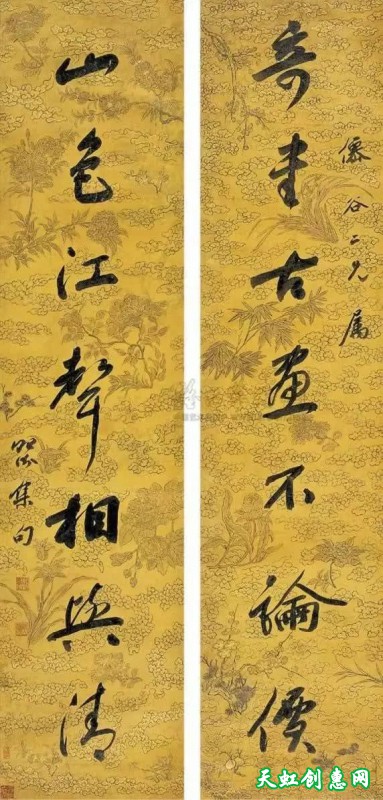 奇書古畫不論價
谷二兄属
山色江聲相與清
集句
天虹创惠网